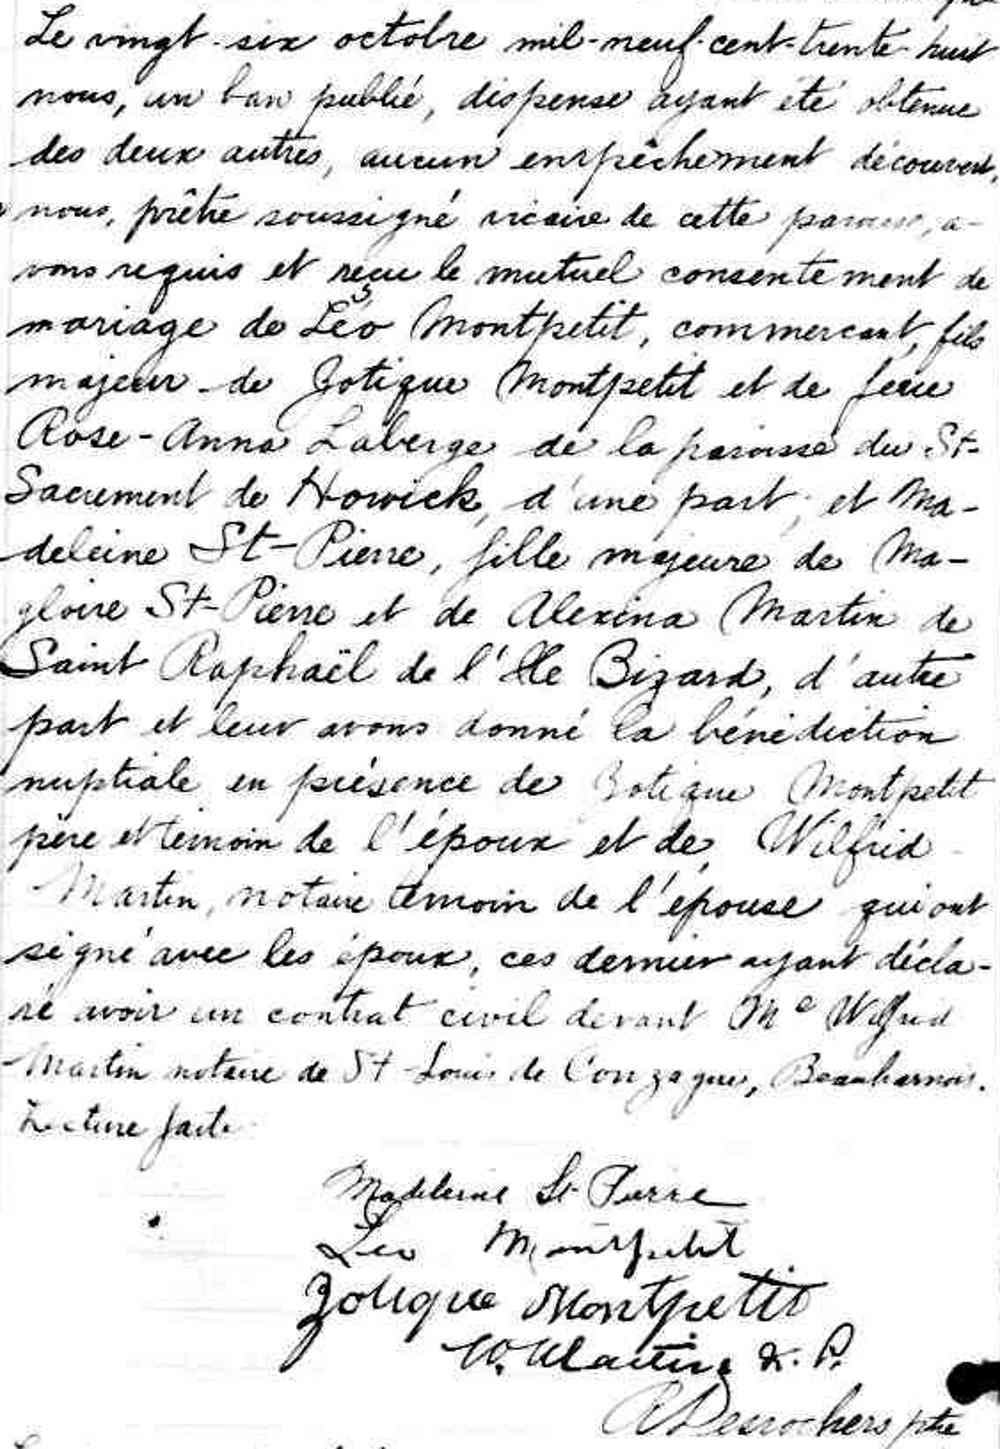 Le vingt-six octobre mil-neuf-cent-trente-huit
nous, un ban publié, dispense ayant été obtenue
des deux autres, aucun empêchement découvert,
nous, prêtre soussigné vicaire de cette paroisse, a-
vons requis et reçu le mutuel consentement de
mariage de Léo Montpetit, commercant, fils
majeur de Zotique Montpetit et de feue
Rose-Anna Laberge de la paroisse du St-
Sacrement de Howick, d'une part, et Ma-
deleine St-Pierre, fille majeure de Ma-
gloire St-Pierre et de Alexina Martin de
Saint Raphaël de l'Ile Bizard, d'autre
part et leur avons donné la bénédiction
nuptiale en présence de Zotique Montpetit
père et témoin de l'époux et de Wilfrid
Martin, notaire témoin de l'épouse qui ont
signé avec les époux, ces dernier ayant décla-
ré avoir un contrat civil devant Me Wilfrid
Martin notaire de St Louis de Gonzague, Beauharnois.
Lecture faite
Madeleine St-Pierre
Leo Montpetit
Zotique Montpetit
W. Martin N. P.
R Desrochers ptre